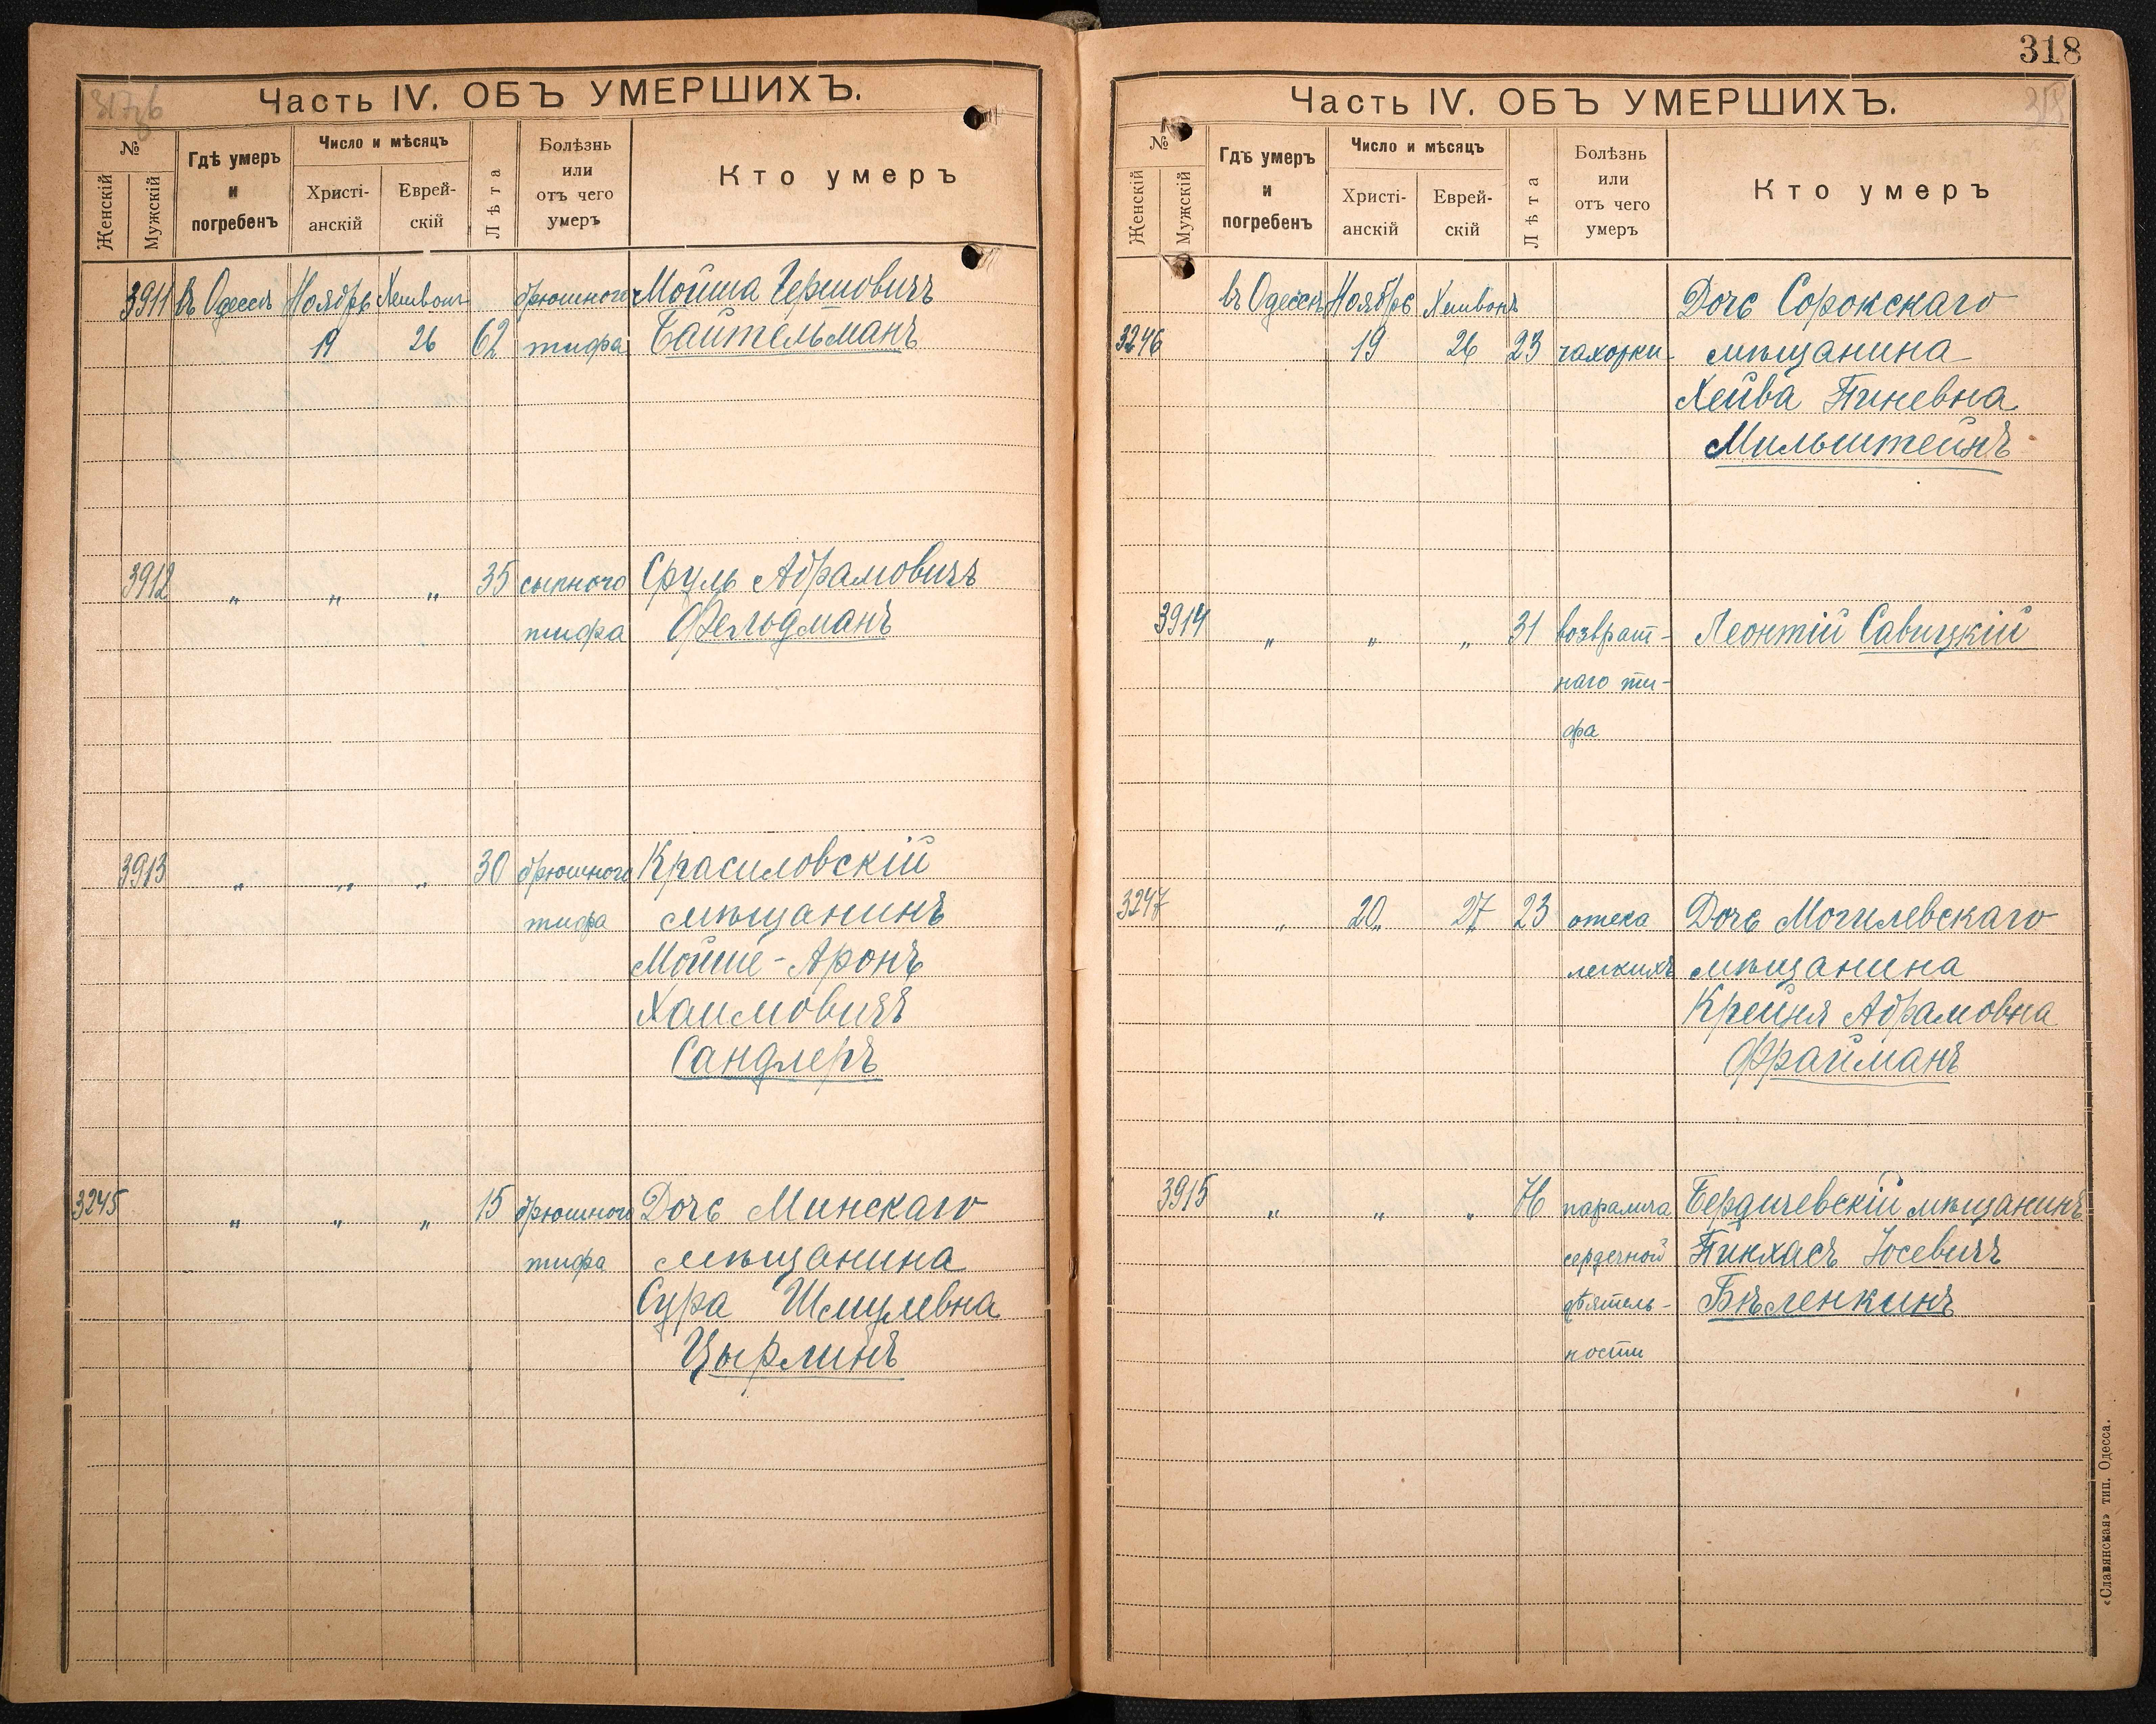 317об
Часть IV. ОБЪ УМЕРШИХЪ.
№
Женскій
Мужскій
Гдѣ умеръ и погребенъ
Число и мѣсяцъ
Христі-анскій
Еврей-скій
Лѣта
Болѣзнь или отъ чего умеръ
Кто умеръ
3911 въ Одессѣ Ноябрь Хешвонъ брюшного Мойша Гершовичъ
19 26 62 тифа Байтельманъ
3912 „ „ „ 35 сыпного Сруль Абрамовичъ
тифа Фельдманъ
3913 „ „ „ 30 брюшного Красиловскій
тифа мѣщанинъ
Мойше-Аронъ
Хаимовичъ
Сандлеръ
3245 „ „ „ 15 брюшного Дочь Минскаго
тифа мѣщанина
Сура Шмулевна
Цырлинъ
318
318
Часть IV. ОБЪ УМЕРШИХЪ.
№
Женскій
Мужскій
Гдѣ умеръ и погребенъ
Число и мѣсяцъ
Христі-анскій
Еврей-скій
Лѣта
Болѣзнь или отъ чего умеръ
Кто умеръ
въ Одессѣ Ноябрь Хешвонъ Дочь Сорокскаго
3246 19 26 23 чахотки мѣщанина
Хейва Пиневна
Мильштейнъ
3914 „ „ „ 31 возврат- Леонтій Савицкій
наго ти-
фа
3247 „ 20 27 23 отека Дочь Могилевскаго
легкихъ мѣщанина
Крейня Абрамовна
Фрайманъ
3915 „ „ „ паралича Бердичевскій мѣщанинъ
сердечной Пинхасъ Іосевичъ
дѣятель- Бѣленкинъ
ности
«Славянская» тип. Одесса.